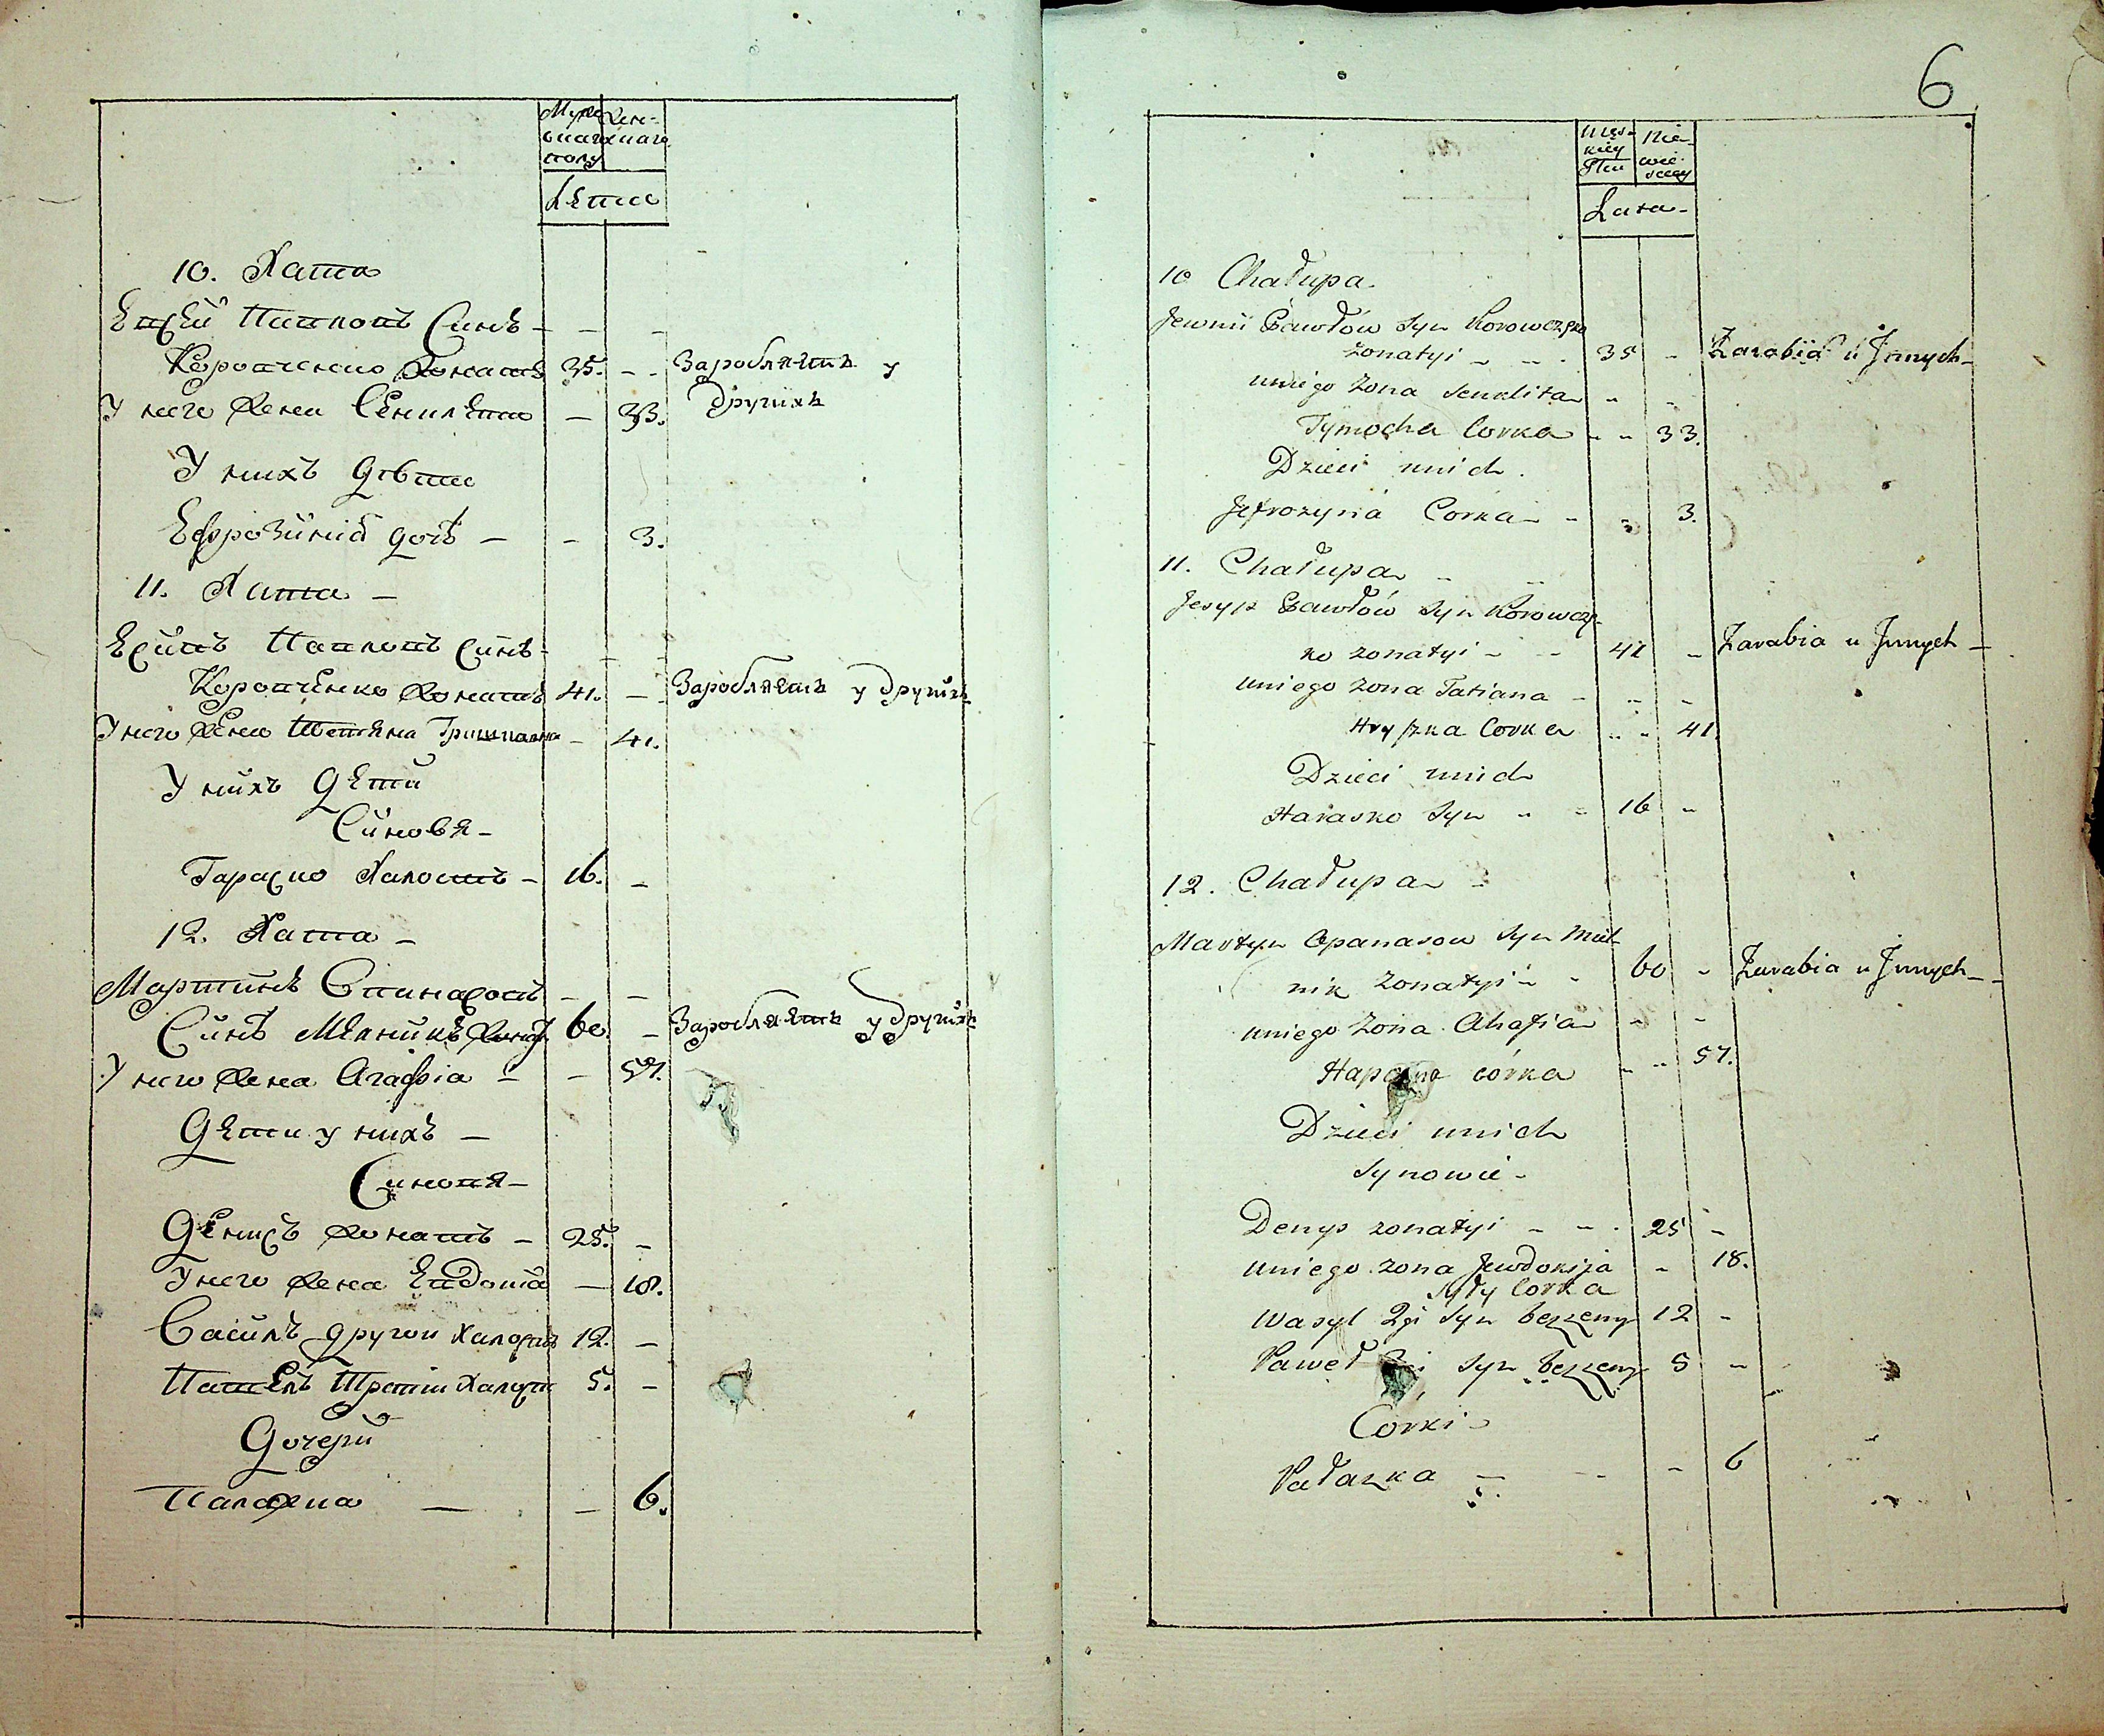 Муже Жен-
скаго скаго
полу
Лета
10. Хата
Евсей Павловъ Синъ - - -
Коровченко Жонатъ 35. - - Заробляетъ у
У него Жена Сенклета - 33. Другихъ
У нихъ дѣти
Ефрозинія дочь - - 3.
11. Хата -
Есипъ Павловъ Синъ - - -
Коровченко Жонатъ 41. - Заробляетъ у Другихъ
У него Жена Тетяна Гришковна - 41.
У нихъ Дети
Синовя -
Гараско Холостъ - 16. -
12. Хата -
Мартинъ Опанасовъ - -
Синъ Мелникъ Жонат 60. - Заробляетъ у Другихъ
У него Жена Агафія - - 57.
Дети у нихъ -
Синовя -
Денисъ Жонатъ - 25. -
У него Жена Евдокия - 18.
Василь другой Холостъ 12. -
Павелъ Третій Холост 5. -
Дочери
Палажка - - 6.
6
Męs- Nie-
kiey wie-
Płci sciey
Lata -
10 Chałupa.
Jewnii Pawłów Syn Korowczenko
żonatyi - - - 35 - Zarabia u Jnnych -
uniego żona Senklita - -
Tymocha Corka - - 33.
Dzieci unich.
Jefrozyna Corka - - - 3.
11. Chałupa - -
Jesyp Pawłów Syn Korowczen-
ko żonatyi - - 41 - Zarabia u Jnnych -
uniego żona Tatiana - - -
Hryszka Corka - - 41.
Dzieci unich
Harasko Syn - - 16 -
12. Chałupa -
Martyn Opanasow Syn Miel-
nik żonatyi - - 60 - Zarabia u Jnnych -
uniego żona Ahafia - -
córka - - 57.
Dzieci unich
Synowie -
Denys żonatyi - - - 25 -
uniego żona Jewdokija - 18.
Corka
Wasyl 2gi Syn bezżeny 12 -
Paweł Syn bezżeny 5 -
Córki -
Pałazka - - - 6